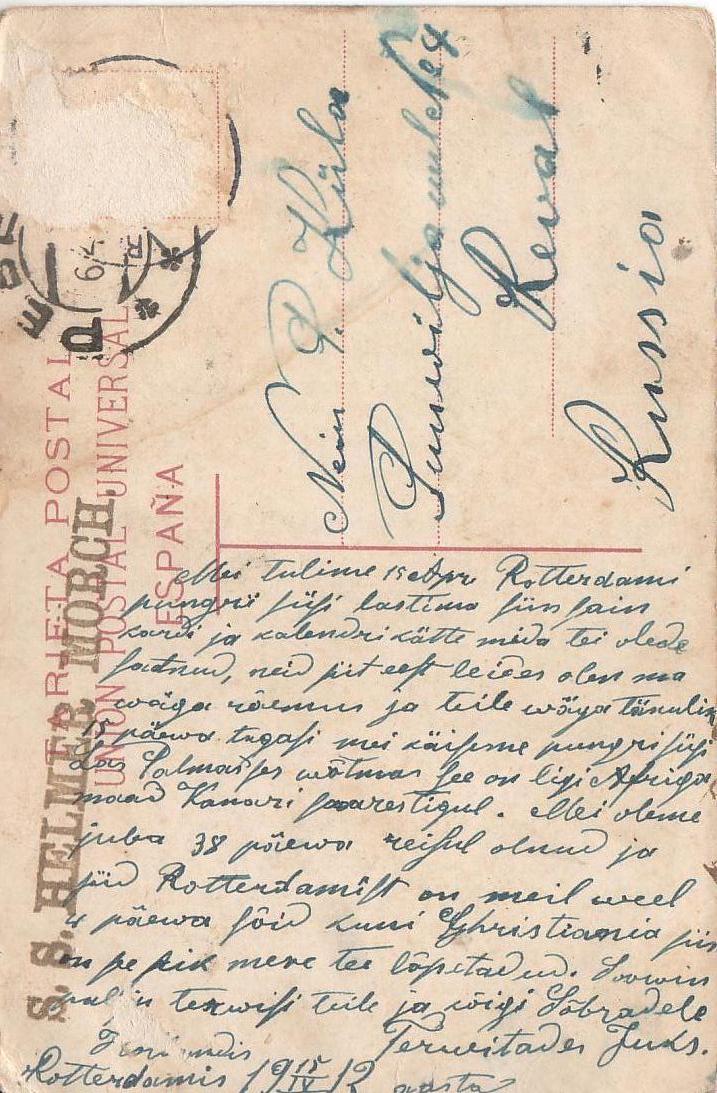 TARJETA POSTAL
UNION POSTAL UNIVERSAL
ESPAÑA
S. S. HELMER MORCH.
P. Küla
Reval
Russia
Mei tulime 15 Apr. Rotterdami
pungrii süsi lastima siin sain
kardi ja kalendri kätte mida tei olede
satnud, neid siit eest leides olen ma
wäga rõemus ja teile wäga tänulin
15 päewa tagasi mei käisime pungri süsi
Las Palmasses wõtmas see on ligi Afriga
maad Kanari saarestigul. Mei oleme
juba 38 päewa reisul olnud ja
siid Rotterdamist on meil weel
4 päewa sõid kuni Christiania siis
on se pik mere tee lõpetadud. Soowin
terwisi teile ja kõigi Sõbradele
Terweitades Juks.
Rotterdamis 19 15/IV 12 aasta